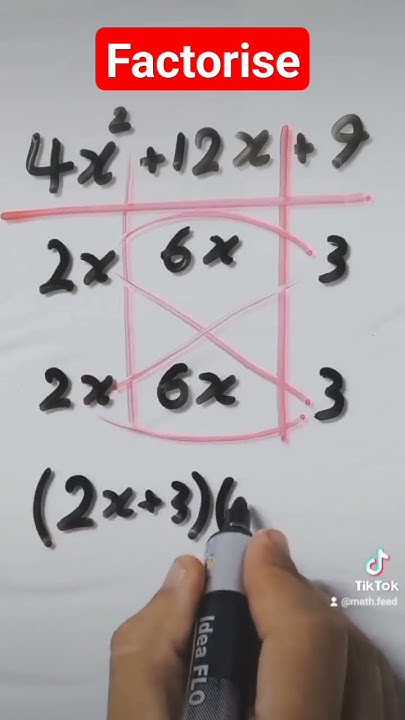 Factorise
4x² + 12x + 9
2x 6x 3
2x 6x 3
(2x+3)(
Idea FLO
TikTok
@math.feed